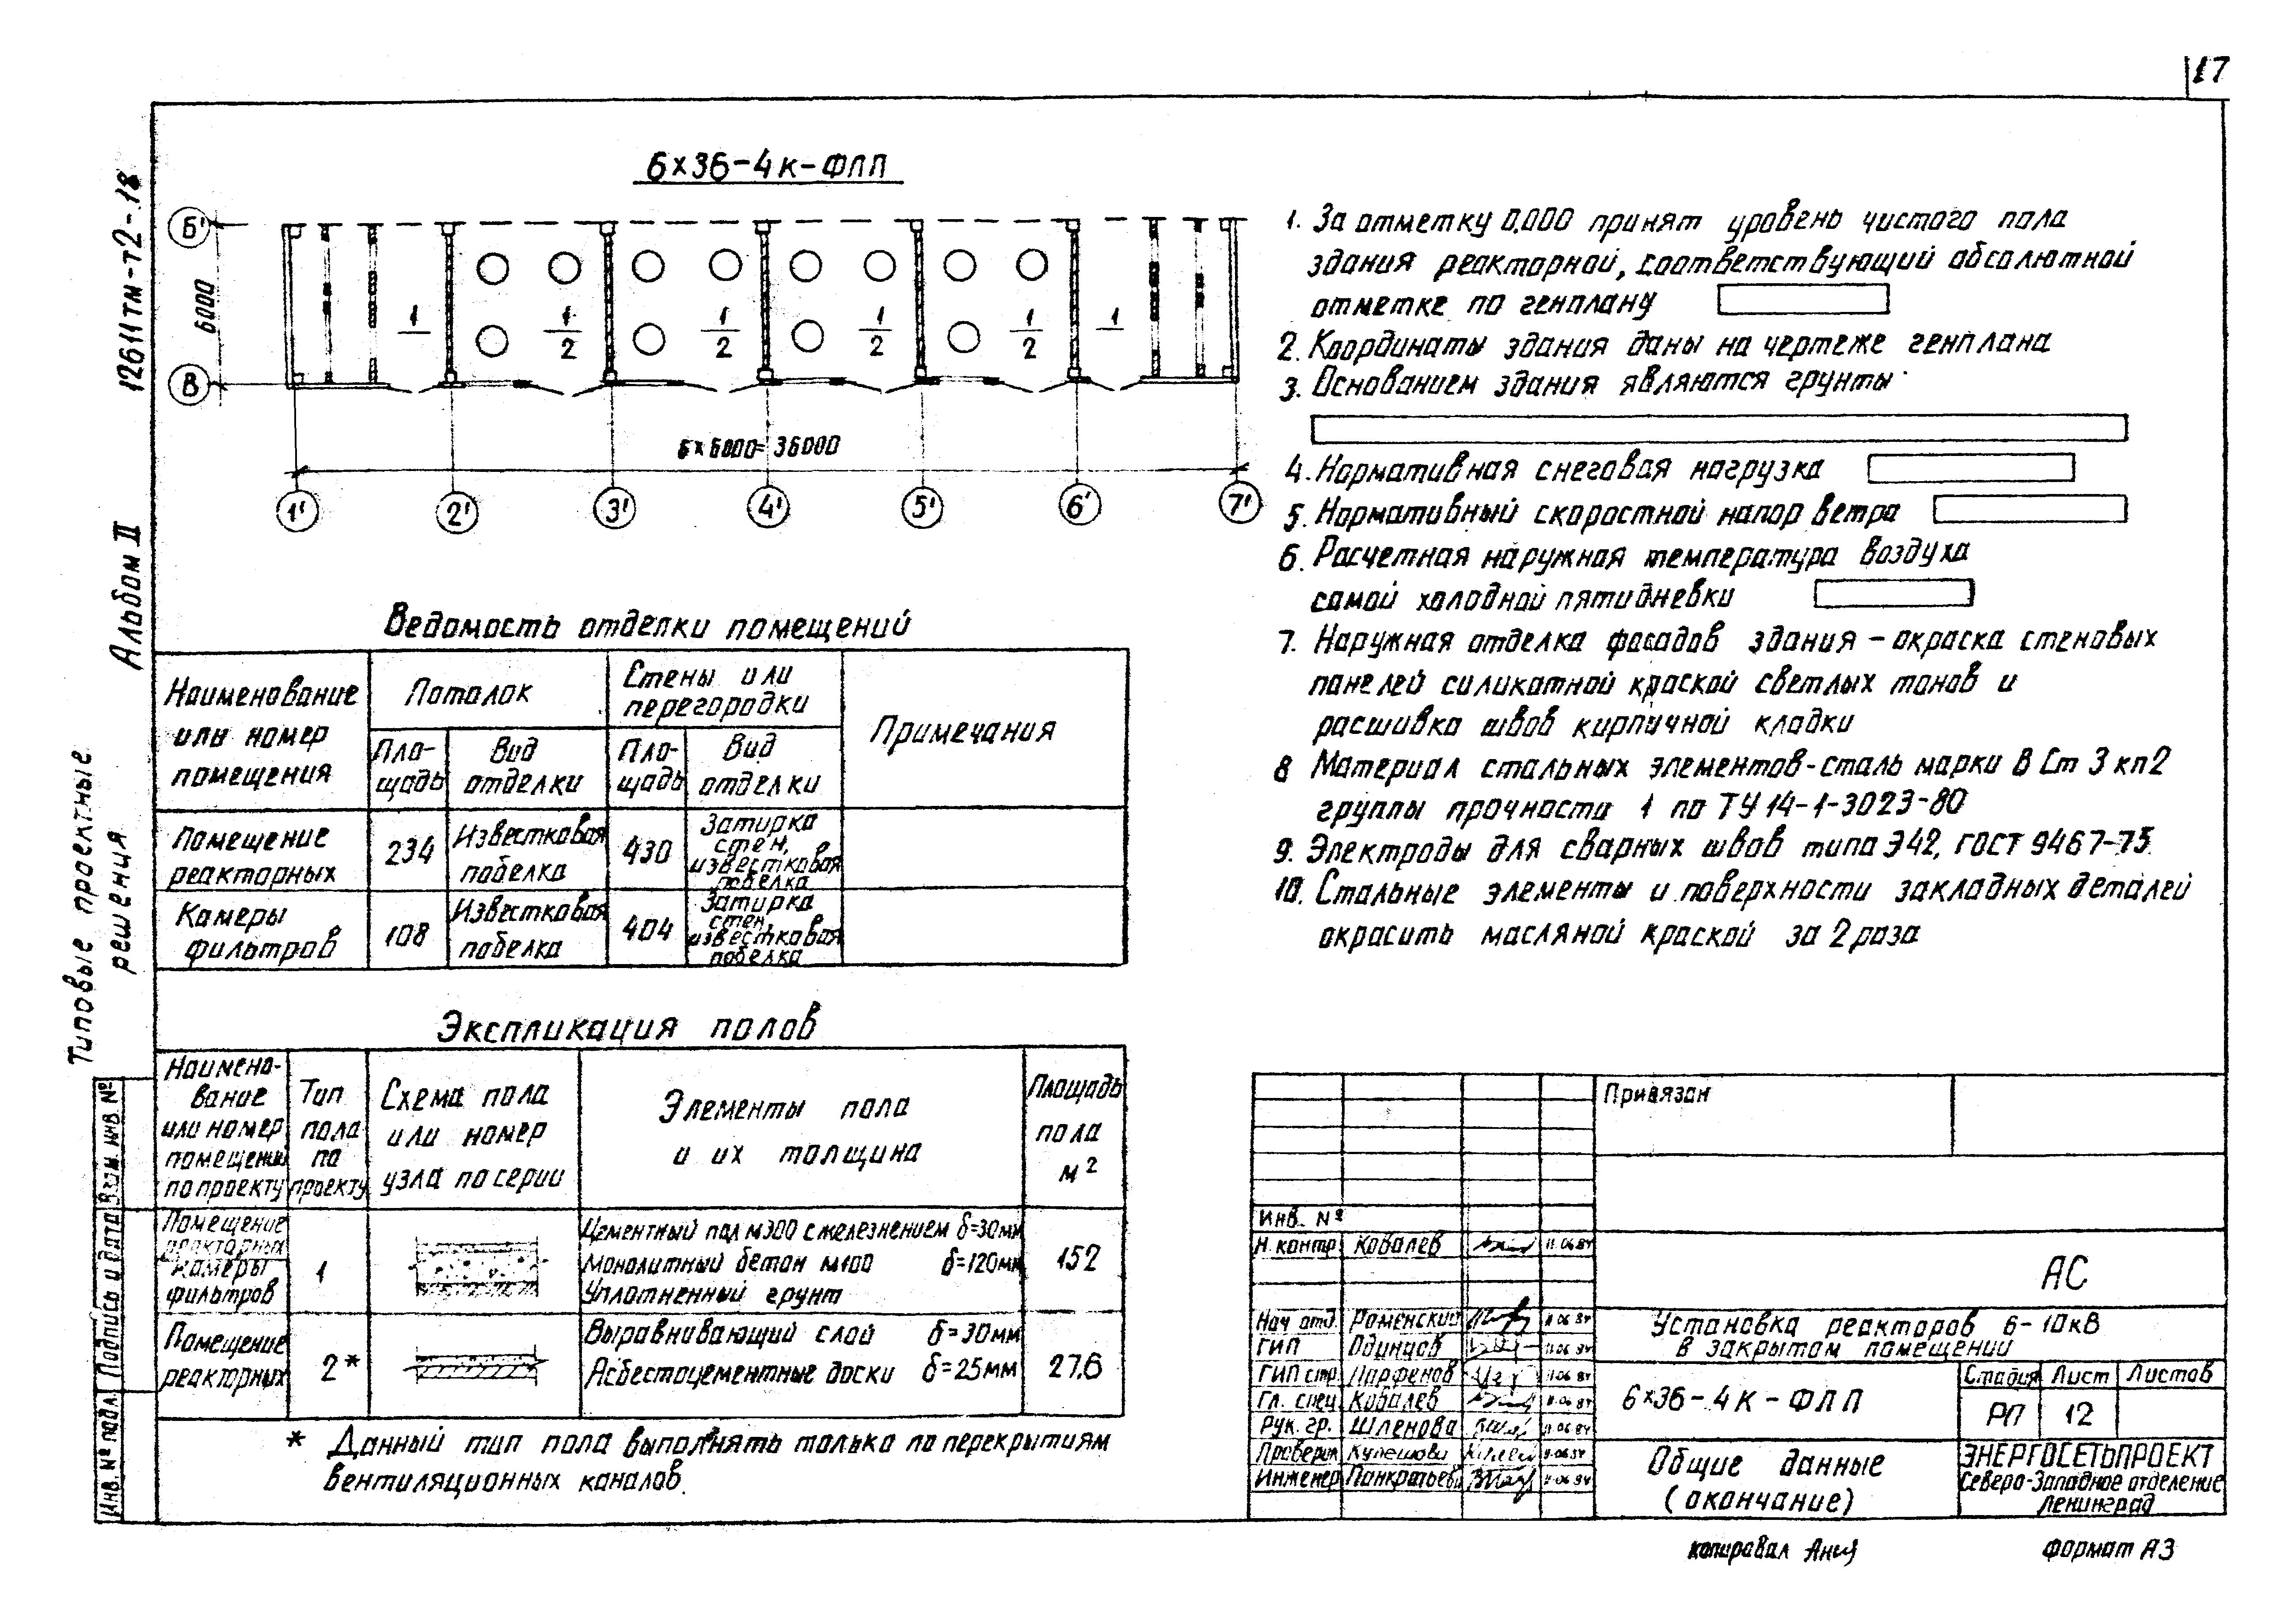 17
12611тм-т2-18
Альбом II
Типовые проектные
решения
6×36-4к-ФЛП
Б'
В
6000
1
1
2
1
2
1
2
1
2
1
6×6000=36000
1'
2'
3'
4'
5'
6'
7'
1. За отметку 0.000 принят уровень чистого пола
здания реакторной, соответствующий абсолютной
отметке по генплану
2. Координаты здания даны на чертеже генплана
3. Основанием здания являются грунты
4. Нормативная снеговая нагрузка
5. Нормативный скоростной напор ветра
6. Расчетная наружная температура воздуха
самой холодной пятидневки
7. Наружная отделка фасадов здания - окраска стеновых
панелей силикатной краской светлых тонов и
расшивка швов кирпичной кладки
8 Материал стальных элементов-сталь марки В Ст 3 кп2
группы прочности 1 по ТУ 14-1-3023-80
9. Электроды для сварных швов типа Э42, ГОСТ 9467-75.
10. Стальные элементы и поверхности закладных деталей
окрасить масляной краской за 2 раза
Ведомость отделки помещений
Наименование
или номер
помещения
Потолок
Стены или
перегородки
Примечания
Пло-
щадь
Вид
отделки
Пло-
щадь
Вид
отделки
Помещение
реакторных
234
Известковая
побелка
430
Затирка
стен,
известковая
побелка
Камеры
фильтров
108
Известковая
побелка
404
Затирка
стен,
известковая
побелка
Экспликация полов
Наимено-
вание
или номер
помещения
по проекту
Тип
пола
по
проекту
Схема пола
или номер
узла по серии
Элементы пола
и их толщина
Площадь
пола
м2
Помещение
реакторных
Камеры
фильтров
1
Цементный пол М300 с железнением δ=30мм
Монолитный бетон М100 δ=120мм
Уплотненный грунт
152
Помещение
реакторных
2*
Выравнивающий слой δ=30мм
Асбестоцементные доски δ=25мм
27.6
* Данный тип пола выполнять только по перекрытиям
вентиляционных каналов.
Взам. инв №
Подпись и дата
Инв. № подл.
Привязан
Инв. №
Н. контр. Ковалев 11.06.84
АС
Нач отд. Роменский 11.06.84
ГИП Одинцов 11.06.84
ГИП стр. Парфенов 11.06.84
Гл. спец Ковалев 11.06.84
Рук. гр. Шленова 11.06.84
Проверил Кулешова 11.06.84
Инженер Панкратьева 11.06.84
Установка реакторов 6-10кВ
в закрытом помещении
6×36-4к-ФЛП
Стадия Лист Листов
РП 12
Общие данные
(окончание)
ЭНЕРГОСЕТЬПРОЕКТ
Северо-Западное отделение
Ленинград
копировал
Формат А3